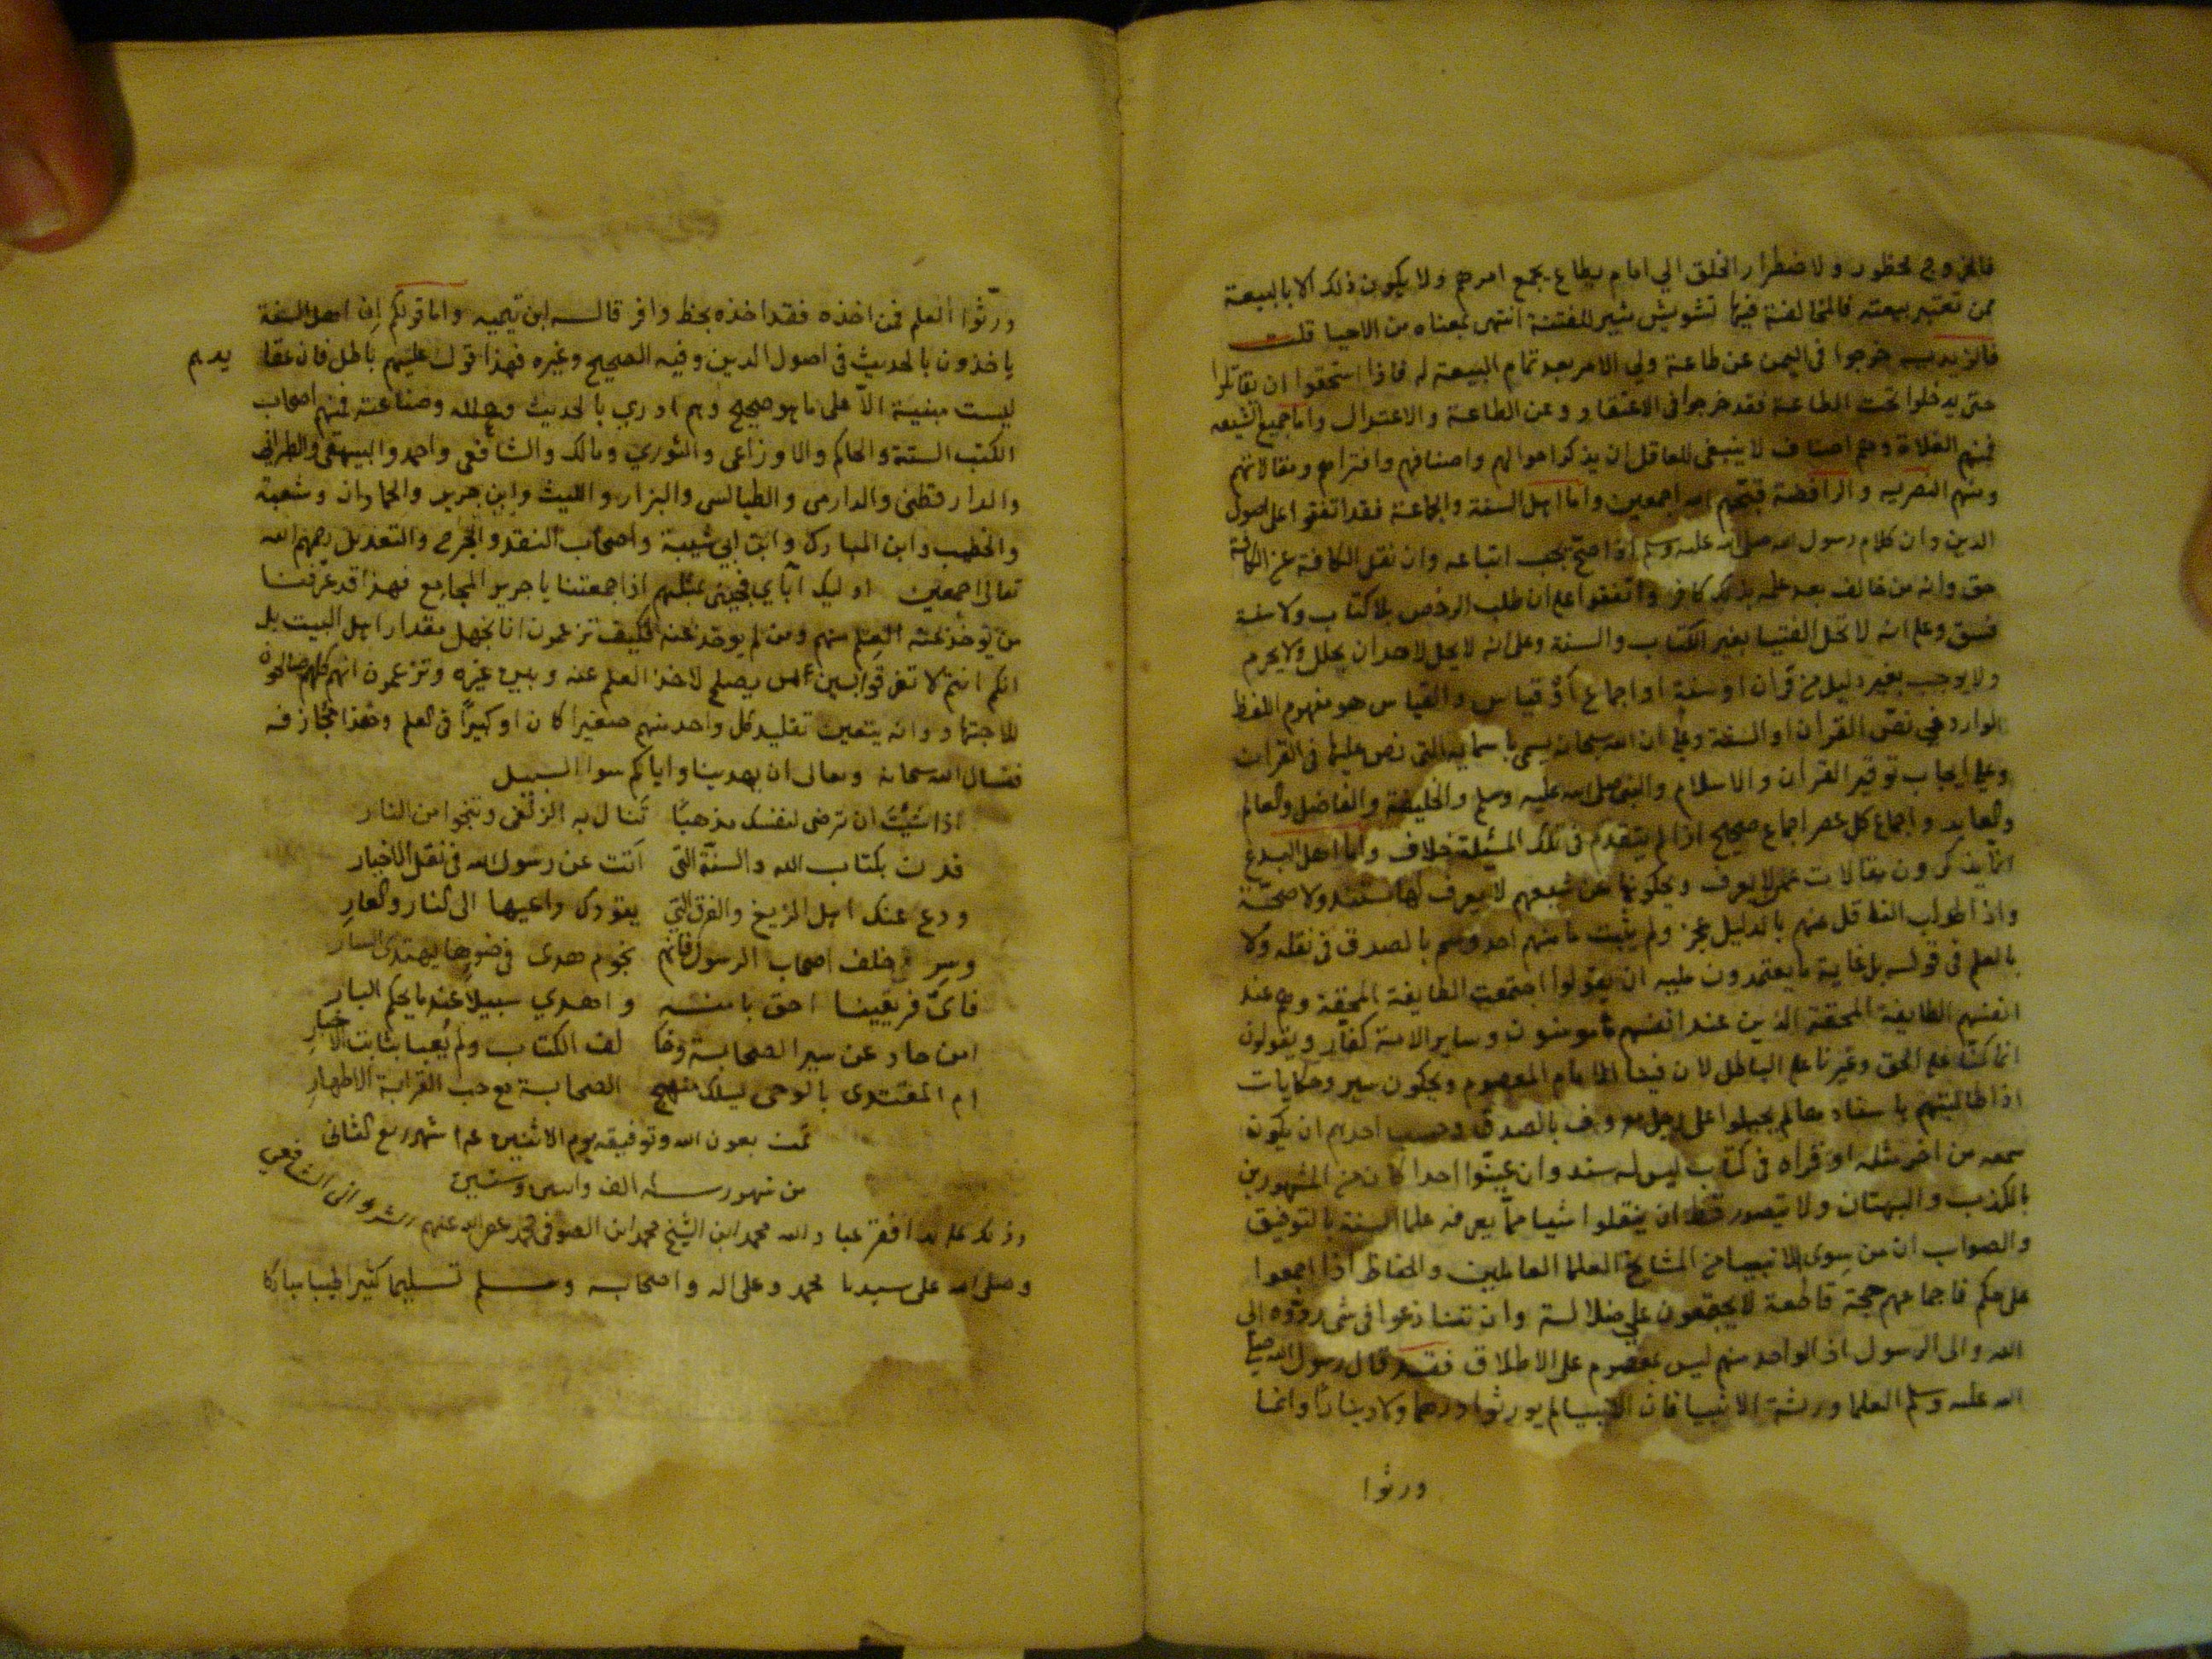 فالخروج محظور ولاضطرار الخلق الي امام يطاع يجمع امرهم ولا يكون ذلك الا بالبيعة
ممن تعتبر بيعته فالمخالفة فيها تشويش مثير للفتنة انتهى بمعناه من الاحيا قلت
فالزيديه خرجوا في اليمن عن طاعة ولي الامر بعد تمام البيعة له فاذا استحقوا ان يقاتلوا
حتى يدخلوا تحت الطاعة فقد خرجوا في الاعتقاد وعن الطاعة والاعتزال واما جميع الشيعه
فمنهم الغلاة وهم اصناف لا ينبغي للعاقل ان يذكر احوالهم واصنافهم وافتراهم ومقالاتهم
ومنهم النصريه والرافضة قبحهم الله اجمعين واما اهل السنة والجماعة فقد اتفقوا على اصول
الدين وان كلام رسول الله صلى الله عليه وسلم اذا صح يجب اتباعه وان نقل الكافة عن الكافة
حق وانه من خالف بعد علمه بذلك كافر واتفقوا على ان طلب الرخص بلا كتاب ولا سنة
فسق وعلى انه لا تحل الفتيا بغير الكتاب والسنة وعلى انه لا يحل لاحد ان يحلل ولا يحرم
ولا يوجب بغير دليل من قران او سنة او اجماع او قياس والقياس هو مفهوم اللفظ
الوارد في نص القران او السنة وعلى ان الله سبحانه يسمى باسمايه التي نص عليها في القران
وعلى ايجاب توقير القران والاسلام والنبي صلى الله عليه وسلم والخليفة والفاضل والعالم
والعابد واجماع كل عصر اجماع صحيح اذا لم يتقدم في تلك المسئلة خلاف واما اهل البدع
انما يذكرون مقالات عمن لا يعرف ويحكونها عن شيعهم لا يعرف لها سند ولا صحة
واذا طولب الناقل عنهم بالدليل عجز ولم يثبت ما منهم احد وسم بالصدق في نقله ولا
بالعلم في قوله بل غاية ما يعتمدون عليه ان يقولوا اجتمعت الطايفة المحقة وهم عند
انفسهم الطايفة المحقة الذين عند انفسهم مومنون وساير الامة كفار ويقولون
انما كنا على الحق وغيرنا على الباطل لان فينا الامام المعصوم ويحكون سير وحكايات
اذا طالبتهم باسناد عالم يحيلوا على رجل معروف بالصدق وحسب احدهم ان يكون
سمعه من اخر مثله او قراه في كتاب ليس له سند وان عينوا احدا كان من المشهورين
بالكذب والبهتان ولا يتصور قط ان ينقلوا شيا مما يعرفه علما السنة بالتوفيق
والصواب ان من سوى الانبيا من المشايخ العلما العاملين والحفاظ اذا اجمعوا
على حكم فاجماعهم حجة قاطعة لا يجتمعون على ضلالة وان تنازعوا في شي ردوه الى
الله والى الرسول اذ الواحد منهم ليس بمعصوم على الاطلاق فقد قال رسول الله صلى
الله عليه وسلم العلما ورثة الانبيا فان الانبيا لم يورثوا درهما ولا دينارا وانما
ورثوا
ورّثوا العلم فمن اخذه فقد اخذه بحظ وافر قاله ابن تيميه واما قولكم ان اهل السنة
ياخذون بالحديث في اصول الدين وفيه الصحيح وغيره فهذا قول عليهم باطل فان عقا يدهم
ليست مبنية الا على ما هو صحيح وهم ادرى بالحديث وعلله وصناعته فمنهم اصحاب
الكتب الستة والحاكم والاوزاعى والثوري ومالك والشافعي واحمد والبيهقي والطبراني
والدارقطني والدارمى والطيالسى والبزار والليث وابن جرير والحمادان وشعبة
والخطيب وابن المبارك وابن ابي شيبة واصحاب النقد والجرح والتعديل رحمهم الله
تعالى اجمعين اوليك آبآي فجيني بمثلهم اذا جمعتنا يا جرير المجامع فهذا قد عرفنا
من يوخذ عنه العلم منهم ومن لم يوخذ عنه فكيف تزعمون انا نجهل مقدار اهل البيت بل
انكم انتم لا تفرقوا بين من يصلح لاخذ العلم عنه وبين غيره وتزعمون انهم كلهم صالحون
للاجتهاد وانه يتعين تقليد كل واحد منهم صغيرا كان او كبيرا في العلم وهذا مجازفه
فنسال الله سبحانه وتعالى ان يهدينا واياكم سوا السبيل
اذا شيت ان ترضى لنفسك مذهبا تنال به الزلفى وتنجوا من النار
فدن بكتاب الله والسنة التي اتت عن رسول الله في نقل الاخيار
ودع عنك اهل الزيغ والفرق التي يقودك داعيها الى النار والعار
وسر خلف اصحاب الرسول فانهم نجوم هدى في ضوءها يهتدى السار
فاىّ فريقينا احق بامنه واهدي سبيلا عند ما يحكم البار
امن حاد عن سير الصحابة وخا لف الكتاب ولم يعبا بثابت الاخبار
ام المقتدى بالوحى يسلك منهج الصحابة مع حب القرابة الاطهار
تمت بعون الله وتوفيقه يوم الاثنين شهر ربيع الثاني
من شهور سنه الف واثنين وستين
وذلك على يد افقر عباد الله محمد ابن الشيخ محمد ابن الصوفى محمد عفى الله عنهم الشافعي
وصلى الله على سيدنا محمد وعلى اله واصحابه وسلم تسليما كثيرا طيبا مباركا